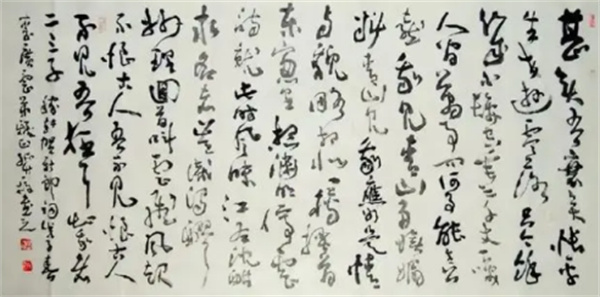 甚矣吾衰矣悵平
生交遊零落只今餘
幾白髮空垂三千丈一笑
人間萬事問何物能令公
喜我見青山多嫵媚
料青山見我應如是情
與貌略相似一樽搔首
東窗里想淵明停雲
詩就此時風味江左沉酣
求名者豈識濁醪
妙理回首叫雲飛風起
不恨古人吾不見恨古人
不見吾狂耳知我者
二三子 賀新郎詞